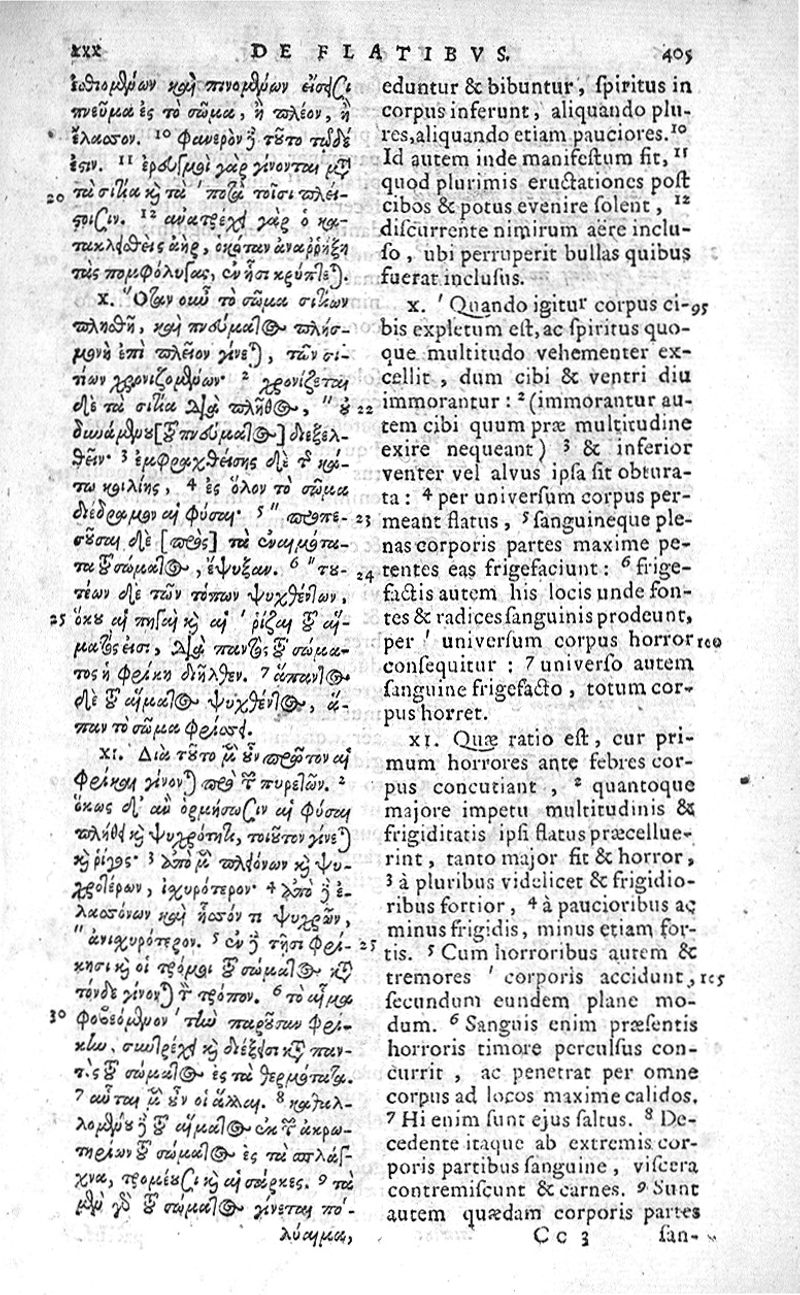 xxx DE FLATIBVS. 405
ἐσθιομένων καὶ πινομένων εἴσεισι
πνεῦμα ἐς τὸ σῶμα, ἢ πλέον, ἢ
ἔλασσον. 10 φανερὸν δὲ τοῦτο τῷδέ
ἐστιν. 11 ἐρευγμοὶ γὰρ γίνονται μετὰ
20 τὰ σιτία καὶ τὰ ' ποτὰ τοῖσι πλεί-
στοισιν. 12 ἀνατρέχει γὰρ ὁ κα-
τακλεισθεὶς ἀὴρ, ὁκόταν ἀναῤῥήξῃ
τὰς πομφόλυγας, ἐν ᾗσι κρύπτεται.
X. "Ὅταν οὖν τὸ σῶμα σιτίων
πλησθῇ, καὶ πνεύματος πλησ-
μονὴ ἐπὶ πλεῖον γίνεται, τῶν σι-
τίων χρονιζομένων· 2 χρονίζεται
δὲ τὰ σιτία διὰ πλῆθος, " οὐ 22
δυναμένου [τοῦ πνεύματος] διεξελ-
θεῖν· 3 ἐμφραχθείσης δὲ τῆς κά-
τω κοιλίης, 4 ἐς ὅλον τὸ σῶμα
διέδραμον αἱ φύσαι· 5 " προσπε- 23
σοῦσαι δὲ [πρὸς] τὰ ἐναιμότα-
τα τοῦ σώματος, ἔψυξαν. 6 " του- 24
τέων δὲ τῶν τόπων ψυχθέντων,
25 ὅκου αἱ πηγαὶ καὶ αἱ ' ῥίζαι τοῦ αἵ-
ματός εἰσι, διὰ παντὸς τοῦ σώμα-
τος ἡ φρίκη διῆλθεν. 7 ἅπαντος
δὲ τοῦ αἵματος ψυχθέντος, ἅ-
παν τὸ σῶμα φρίσσει.
XI. Διὰ τοῦτο μὲν οὖν πρῶτον αἱ
φρίκαι γίνονται πρὸ τῶν πυρετῶν. 2
ὅκως δ' ἂν ὁρμήσωσιν αἱ φύσαι
πλήθει καὶ ψυχρότητι, τοιοῦτον γίνεται
καὶ ῥῖγος· 3 ἀπὸ μὲν πλεόνων καὶ ψυ-
χροτέρων, ἰσχυρότερον· 4 ἀπὸ δὲ ἐ-
λασσόνων καὶ ἧσσόν τι ψυχρῶν,
" ἀνισχυρότερον. 5 ἐν δὲ τῇσι φρί- 25
κησι καὶ οἱ τρόμοι τοῦ σώματος κατὰ
τόνδε γίνονται τὸν τρόπον. 6 τὸ αἷμα
30 φοβεόμενον ' τὴν παρεοῦσαν φρί-
κην, συντρέχει καὶ διέξεισι κατὰ παν-
τὸς τοῦ σώματος ἐς τὰ θερμότατα.
7 αὗται μὲν οὖν οἱ ἅλσεις. 8 καθαλ-
λομένου δὲ τοῦ αἵματος ἐκ τῶν ἀκρω-
τηρίων τοῦ σώματος ἐς τὰ σπλάγ-
χνα, τρομέουσι καὶ αἱ σάρκες. 9 τὰ
μὲν γὰρ τοῦ σώματος γίνεται πο-
λύαιμα,
eduntur & bibuntur, spiritus in
corpus inferunt, aliquando plu-
res, aliquando etiam pauciores. 10
Id autem inde manifestum fit, 11
quod plurimis eructationes post
cibos & potus evenire solent, 12
discurrente nimirum aere inclu-
so, ubi perruperit bullas quibus
fuerat inclusus.
X. ' Quando igitur corpus ci- 95
bis expletum est, ac spiritus quo-
que multitudo vehementer ex-
cellit, dum cibi & ventri diu
immorantur: 2 (immorantur au-
tem cibi quum præ multitudine
exire nequeant) 3 & inferior
venter vel alvus ipsa sit obtura-
ta: 4 per universum corpus per-
meant flatus, 5 sanguineque ple-
nas corporis partes maxime pe-
tentes eas frigefaciunt: 6 frige-
factis autem his locis unde fon-
tes & radices sanguinis prodeunt,
per ' universum corpus horror 100
consequitur: 7 universo autem
sanguine frigefacto, totum cor-
pus horret.
XI. Quæ ratio est, cur pri-
mum horrores ante febres cor-
pus concutiant, 2 quantoque
majore impetu multitudinis &
frigiditatis ipsi flatus præcellue-
rint, tanto major fit & horror,
3 à pluribus videlicet & frigidio-
ribus fortior, 4 à paucioribus ac
minus frigidis, minus etiam for-
tis. 5 Cum horroribus autem &
tremores ' corporis accidunt, 105
secundum eundem plane mo-
dum. 6 Sanguis enim præsentis
horroris timore perculsus con-
currit, ac penetrat per omne
corpus ad locos maxime calidos.
7 Hi enim sunt ejus saltus. 8 De-
cedente itaque ab extremis cor-
poris partibus sanguine, viscera
contremiscunt & carnes. 9 Sunt
autem quædam corporis partes
Cc 3 san-